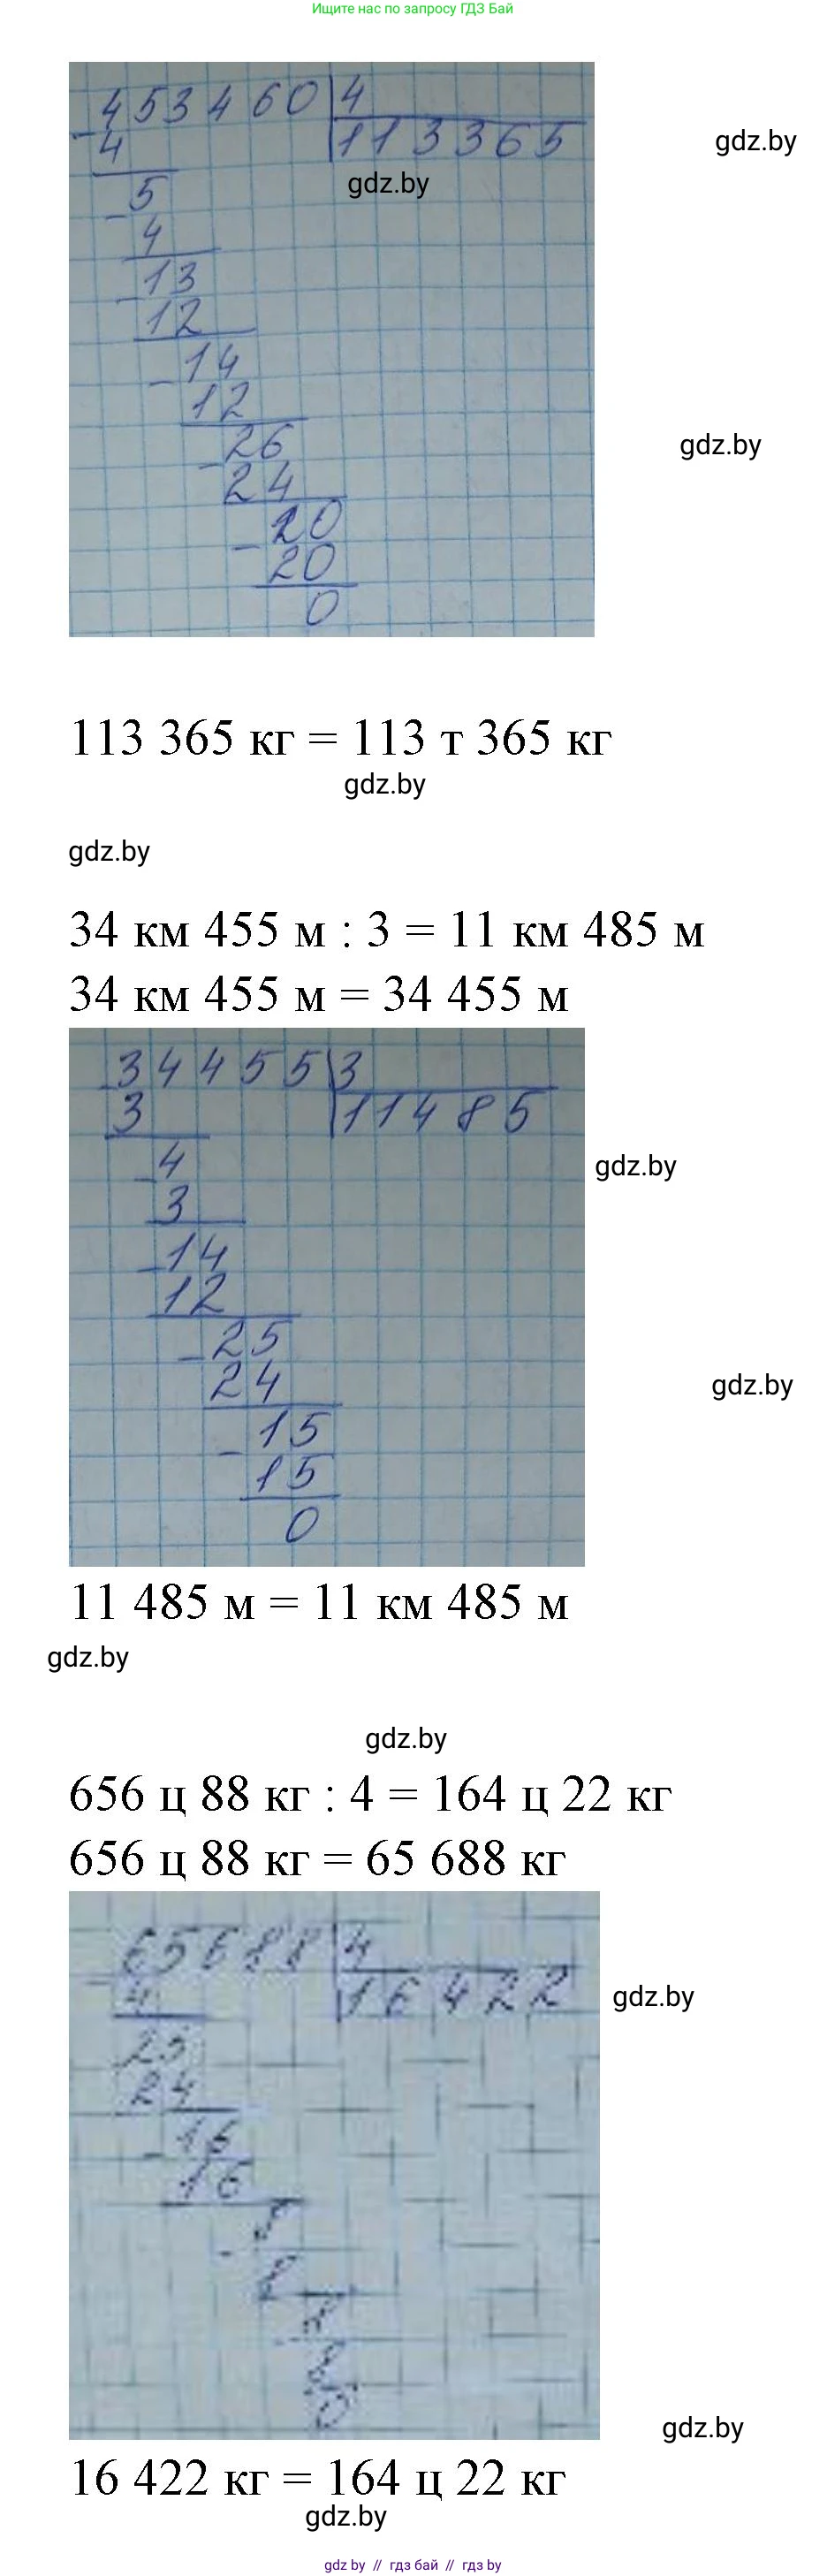 Ищите нас по запросу ГДЗ Бай
453460 4
4 113365
gdz.by
gdz.by
5
4
13
12
14
12
26
gdz.by
24
20
20
0
113 365 кг = 113 т 365 кг
gdz.by
gdz.by
34 км 455 м : 3 = 11 км 485 м
34 км 455 м = 34 455 м
34455 3
3 11485
4
gdz.by
3
14
12
25
24
gdz.by
15
15
0
11 485 м = 11 км 485 м
gdz.by
gdz.by
656 ц 88 кг : 4 = 164 ц 22 кг
656 ц 88 кг = 65 688 кг
65688 4
4 16422
gdz.by
25
24
16
16
8
8
8
8
0
gdz.by
16 422 кг = 164 ц 22 кг
gdz.by
gdz by // гдз бай // гдз by